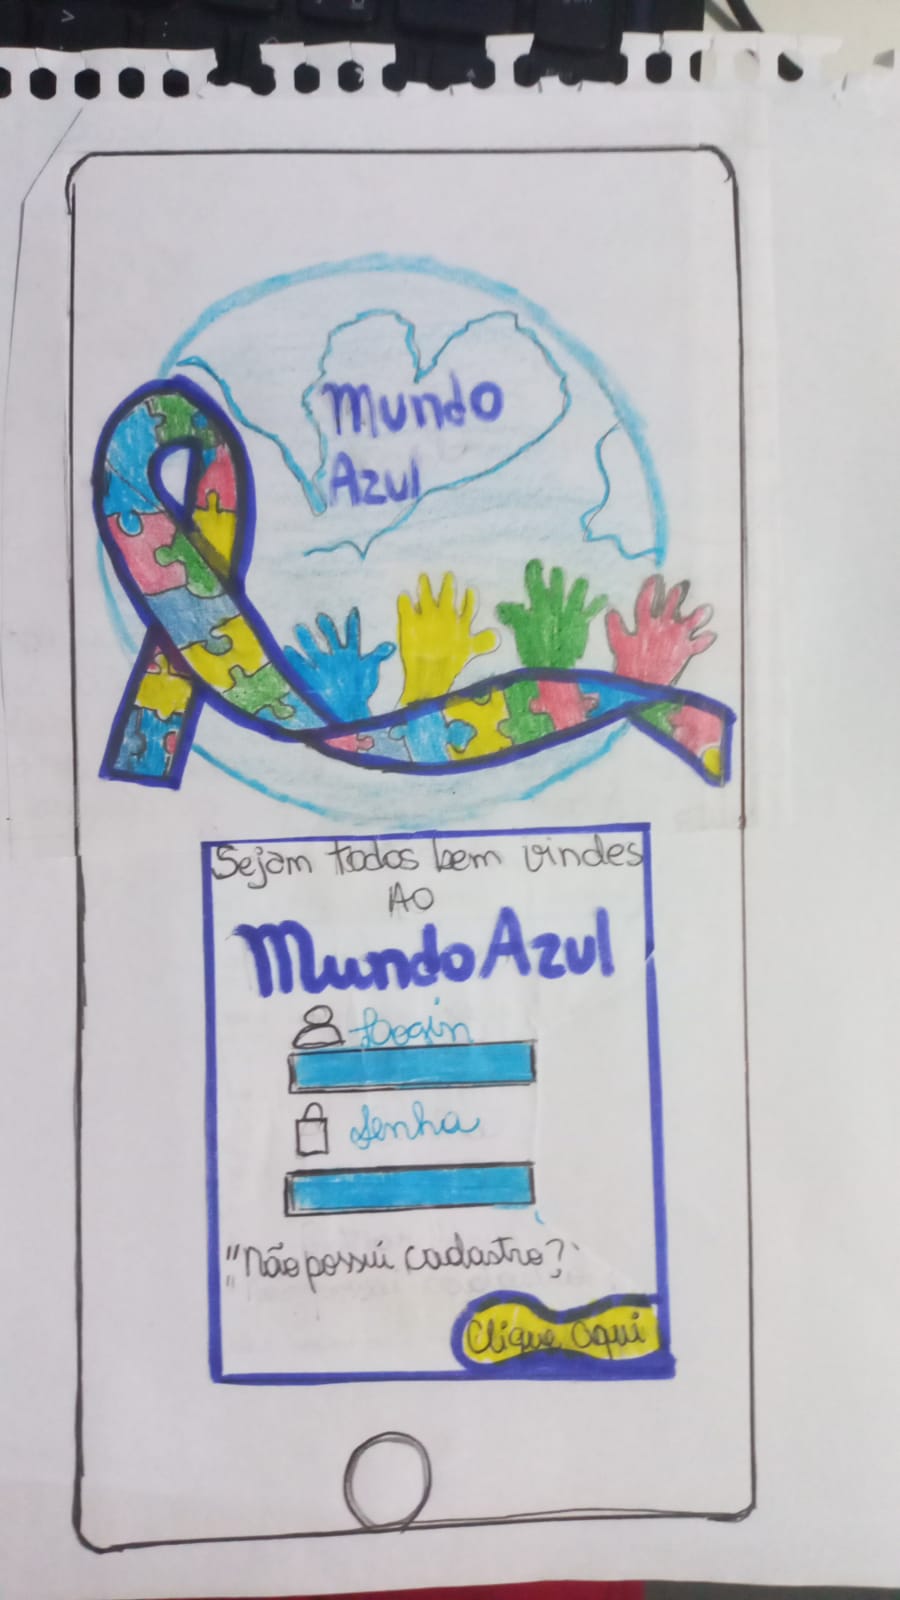 Mundo
Azul
Sejam todos bem vindes
AO
Mundo Azul
Login
Senha
"Não possui cadastro?"
Clique aqui